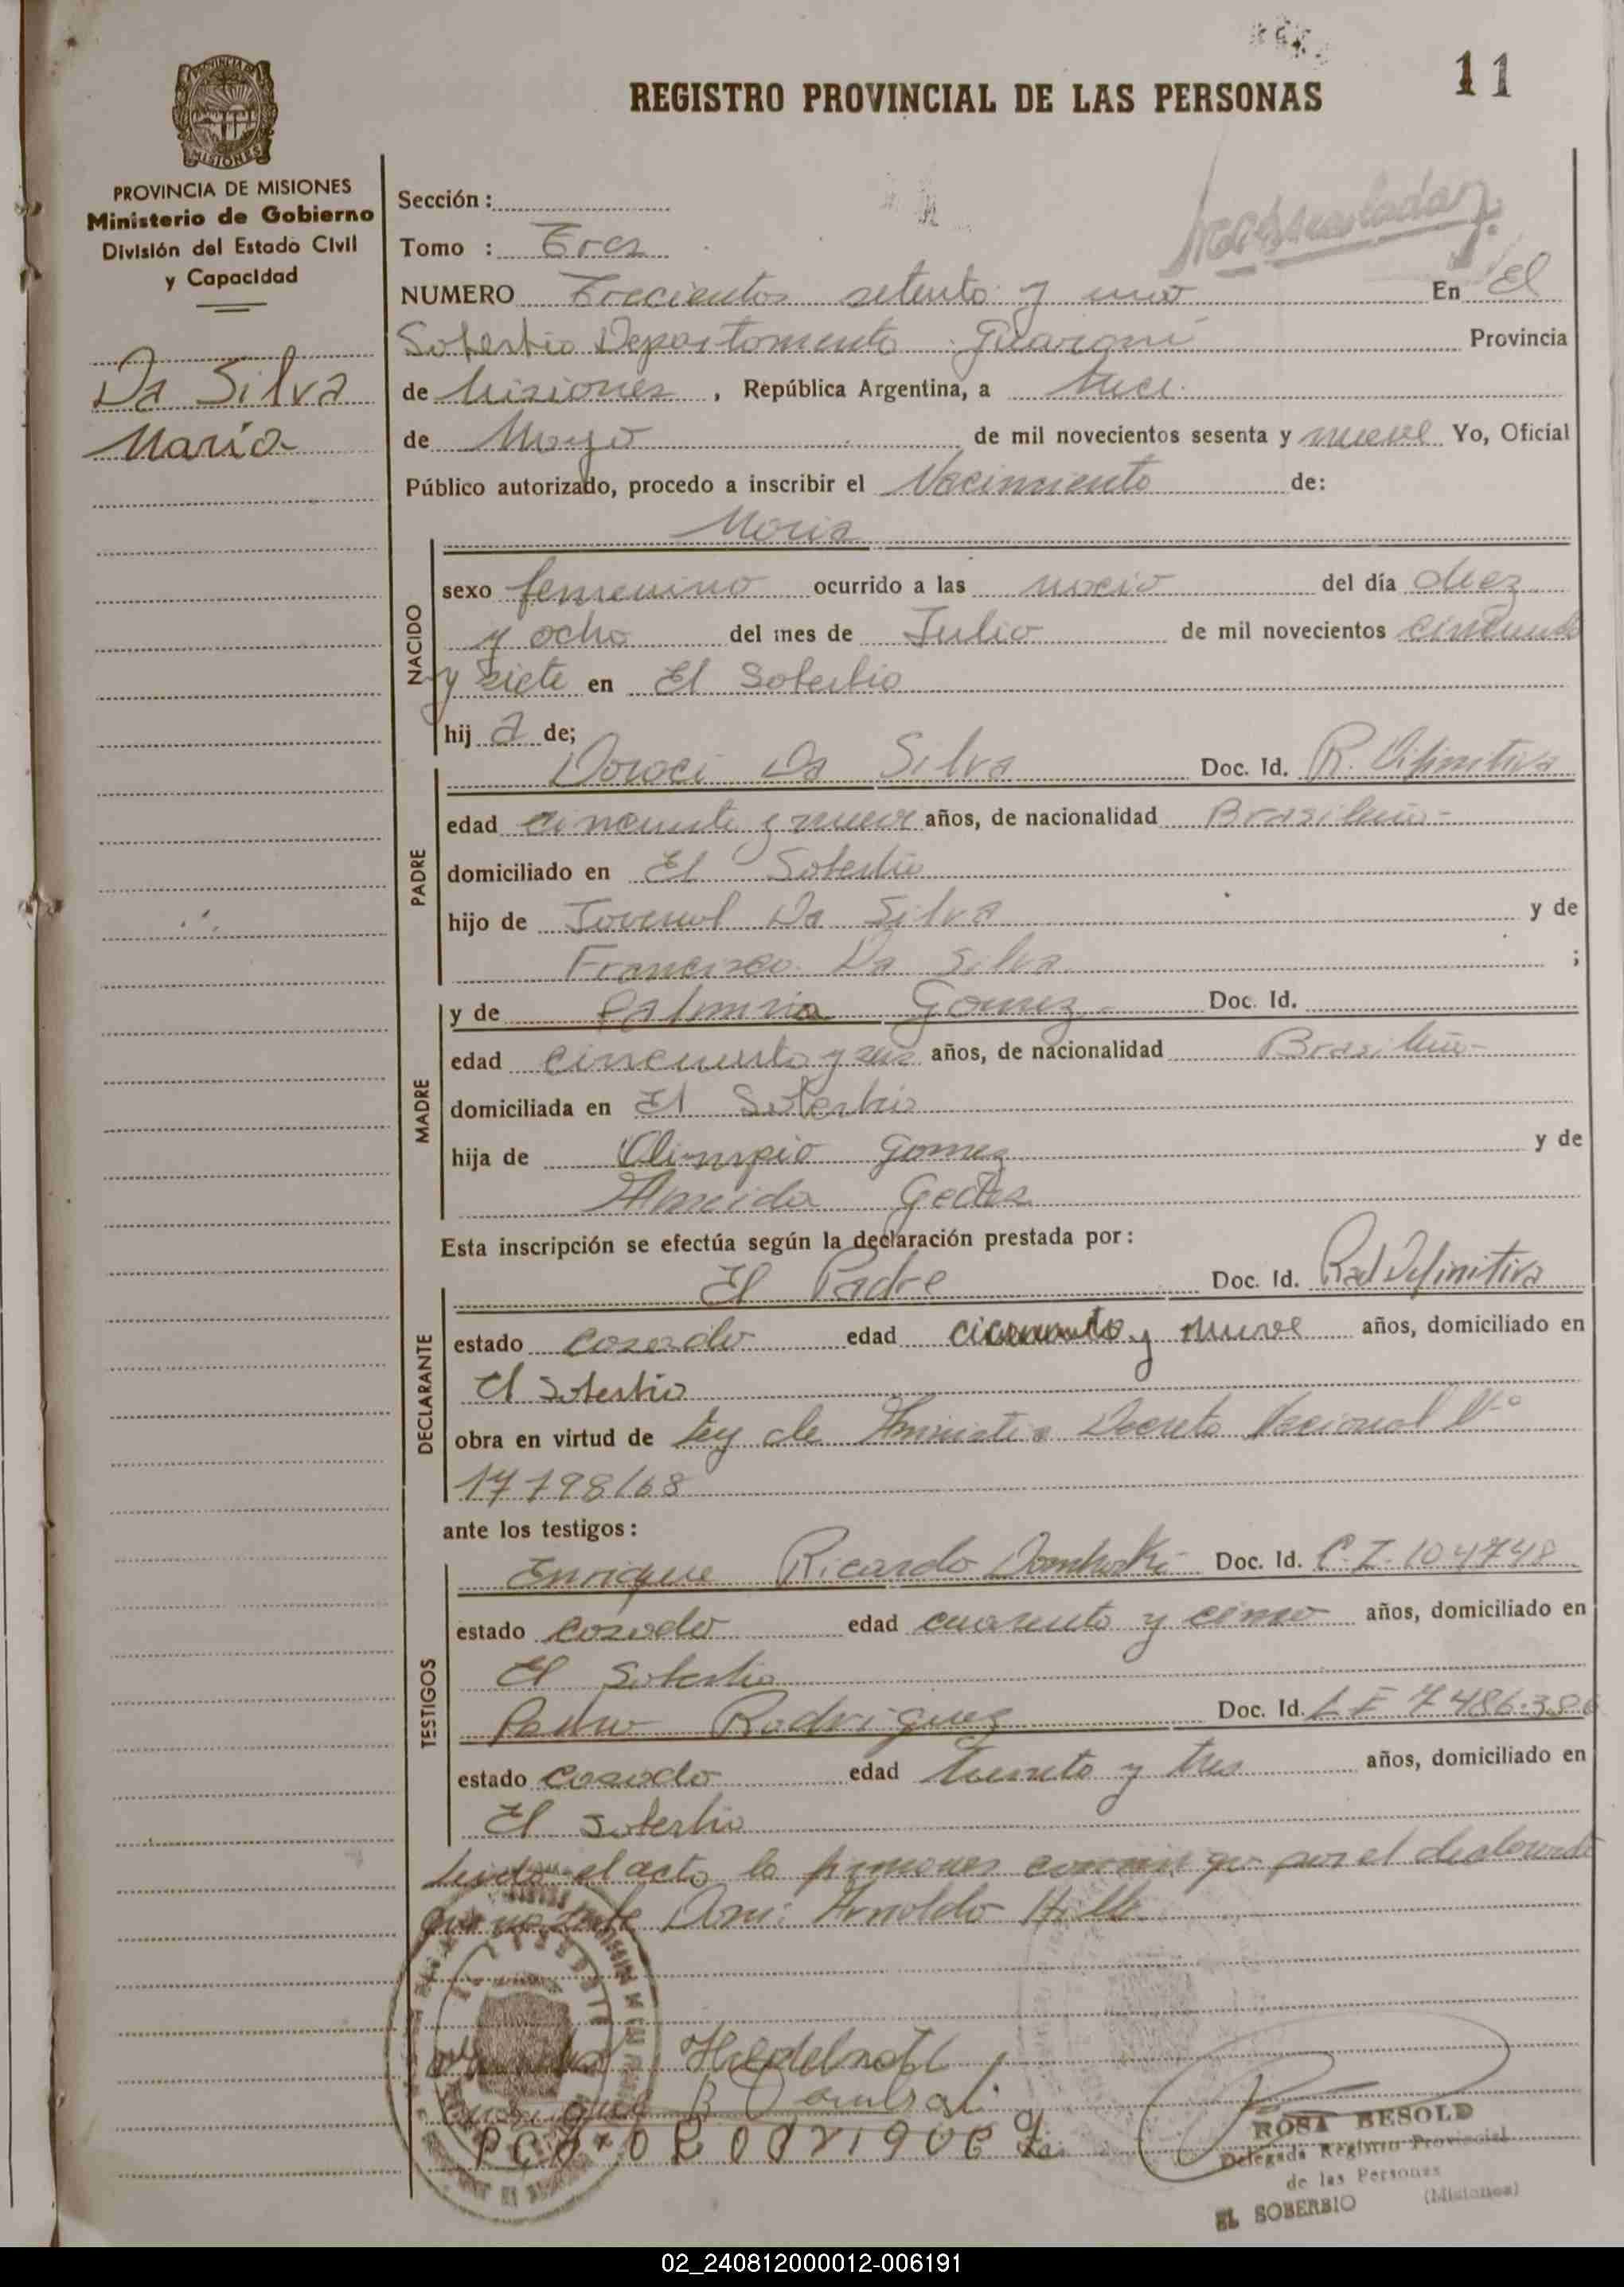 11
REGISTRO PROVINCIAL DE LAS PERSONAS
PROVINCIA DE MISIONES
Ministerio de Gobierno
División del Estado Civil
y Capacidad
Da Silva
Maria
Sección:
Tomo : Tres
NUMERO Trecientos setenta y uno En El
Soberbio Departamento Guarani Provincia
de Misiones, República Argentina, a
de Mayo de mil novecientos sesenta y nueve Yo, Oficial
Público autorizado, procedo a inscribir el Nacimiento de:
Maria
NACIDO
sexo femenino ocurrido a las del día diez
y ocho del mes de Julio de mil novecientos cincuenta
y siete en El Soberbio
hij a de;
PADRE
Doroci Da Silva Doc. Id. R. Difinitiva
edad cincuenta y nueve años, de nacionalidad Brasileño-
domiciliado en El Soberbio
hijo de Jovenal Da Silva y de
Francisca Da Silva ;
MADRE
y de Gomez Doc. Id.
edad cincuenta y seis años, de nacionalidad Brasileño-
domiciliada en El Soberbio
hija de Olimpio Gomez y de
Almeida
Esta inscripción se efectúa según la declaración prestada por:
DECLARANTE
El Padre Doc. Id. Rad Definitiva
estado Casado edad y nueve años, domiciliado en
El Soberbio
obra en virtud de Ley de Amnistia Decreto Nacional Nº
17798/68
ante los testigos:
TESTIGOS
Enrique Ricardo Doc. Id. C.I. 104748
estado Casado edad cuarenta y cinco años, domiciliado en
El Soberbio
Pedro Rodriguez Doc. Id. L E 7486.386
estado Casado edad treinta y tres años, domiciliado en
El Soberbio
Leida el acta la firmaron conmigo por el declarante
que no Arnoldo
ROSA BESOLD
Delegada Registro Provincial
de las Personas
EL SOBERBIO (Misiones)
02_240812000012-006191